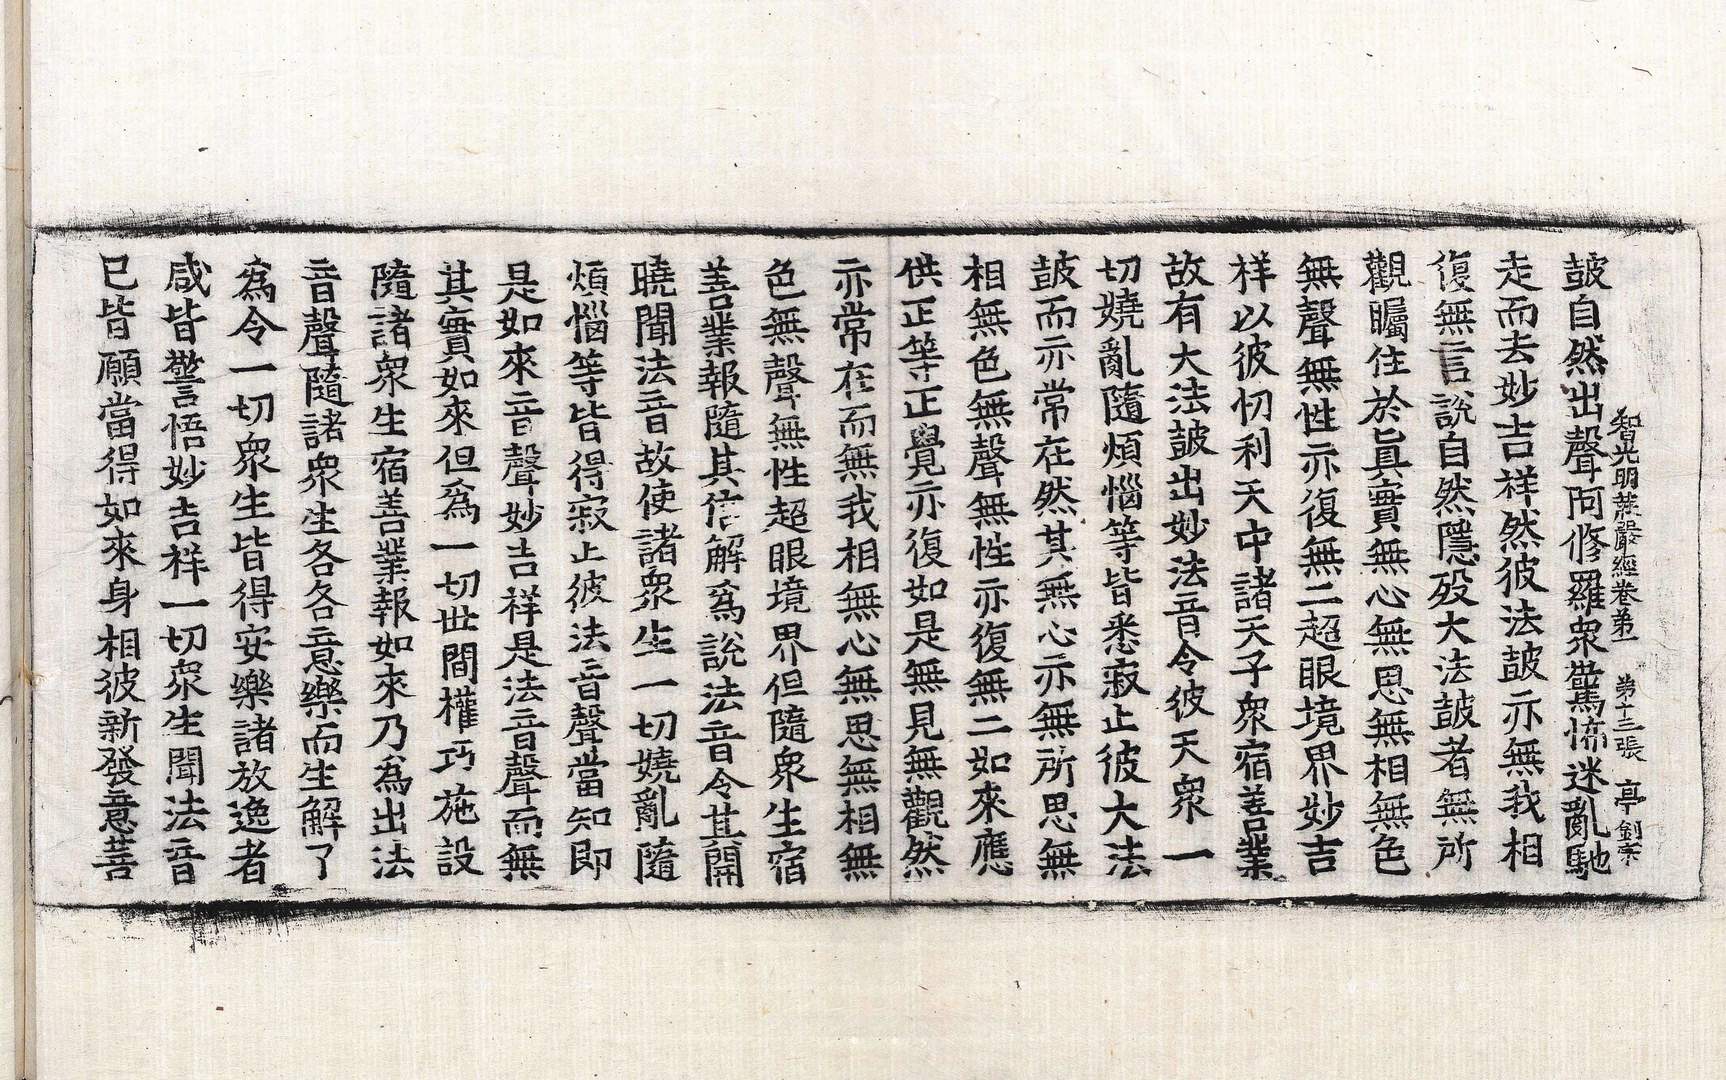 智光明莊嚴經卷第一 第十三張 亭 釗宗
鼓自然出聲阿修羅衆驚怖迷亂馳
走而去妙吉祥然彼法鼓亦無我相
復無言說自然隱歿大法鼓者無所
觀矚住於眞實無心無思無相無色
無聲無性亦復無二超眼境界妙吉
祥以彼忉利天中諸天子衆宿善業
故有大法鼓出妙法音令彼天衆一
切嬈亂隨煩惱等皆悉寂止彼大法
鼓而亦常在然其無心亦無所思無
相無色無聲無性亦復無二如來應
供正等正覺亦復如是無見無觀然
亦常在而無我相無心無思無相無
色無聲無性超眼境界但隨衆生宿
善業報隨其信解爲說法音令其開
曉聞法音故使諸衆生一切嬈亂隨
煩惱等皆得寂止彼法音聲當知即
是如來音聲妙吉祥是法音聲而無
其實如來但爲一切世間權巧施設
隨諸衆生宿善業報如來乃爲出法
音聲隨諸衆生各各意樂而生解了
爲令一切衆生皆得安樂諸放逸者
咸皆警悟妙吉祥一切衆生聞法音
已皆願當得如來身相彼新發意菩